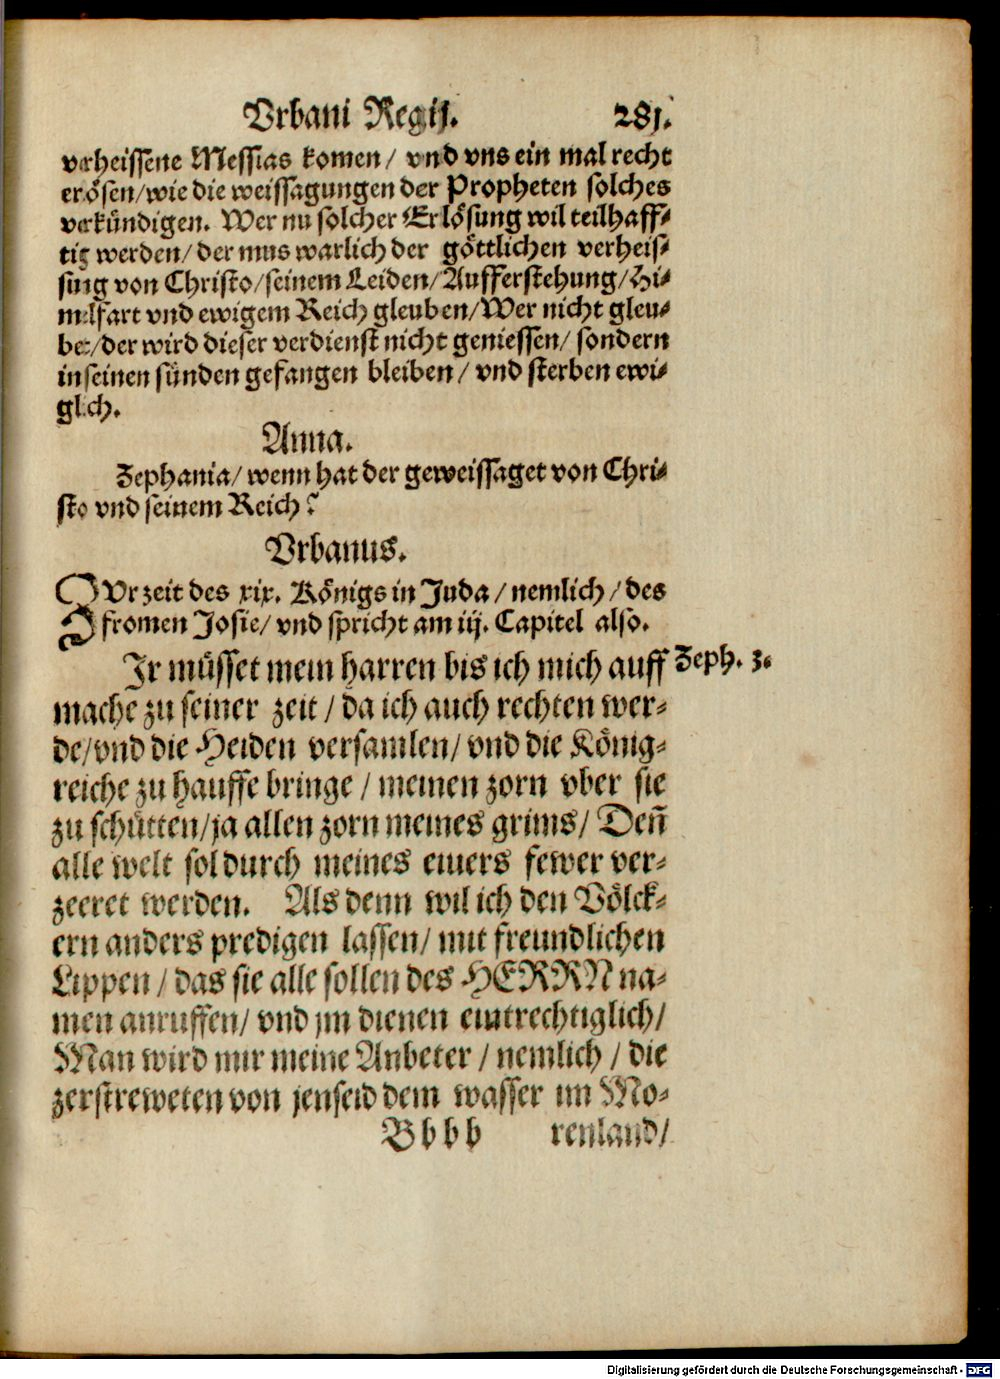 Vrbani Regij. 281.
verheissene Messias komen/ vnd vns ein mal recht
erlösen/wie die weissagungen der Propheten solches
verkündigen. Wer nu solcher Erlösung wil teilhaff⸗
tig werden/ der mus warlich der göttlichen verheis⸗
sung von Christo/seinem Leiden/Aufferstehung/Hi⸗
melfart vnd ewigem Reich gleuben/Wer nicht gleu⸗
bet/der wird dieser verdienst nicht geniessen/ sondern
in seinen sünden gefangen bleiben/ vnd sterben ewi⸗
glich.
Anna.
Zephania/ wenn hat der geweissaget von Chri⸗
sto vnd seinem Reich?
Vrbanus.
ZVr zeit des xix. Königs in Juda/ nemlich/ des
fromen Josie/ vnd spricht am iij. Capitel also.
Ir müsset mein harren bis ich mich auff
Zeph. 3.
mache zu seiner zeit/ da ich auch rechten wer⸗
de/vnd die Heiden versamlen/ vnd die König⸗
reiche zu hauffe bringe/ meinen zorn vber sie
zu schütten/ja allen zorn meines grims/ Deñ
alle welt sol durch meines eiuers fewer ver⸗
zeeret werden. Als denn wil ich den Völck⸗
ern anders predigen lassen/ mit freundlichen
Lippen/ das sie alle sollen des HERRN na⸗
men anruffen/ vnd jm dienen eintrechtiglich/
Man wird mir meine Anbeter/ nemlich/ die
zerstreweten von jenseid dem wasser im Mo⸗
Bbbb renland/
Digitalisierung gefördert durch die Deutsche Forschungsgemeinschaft - DFG